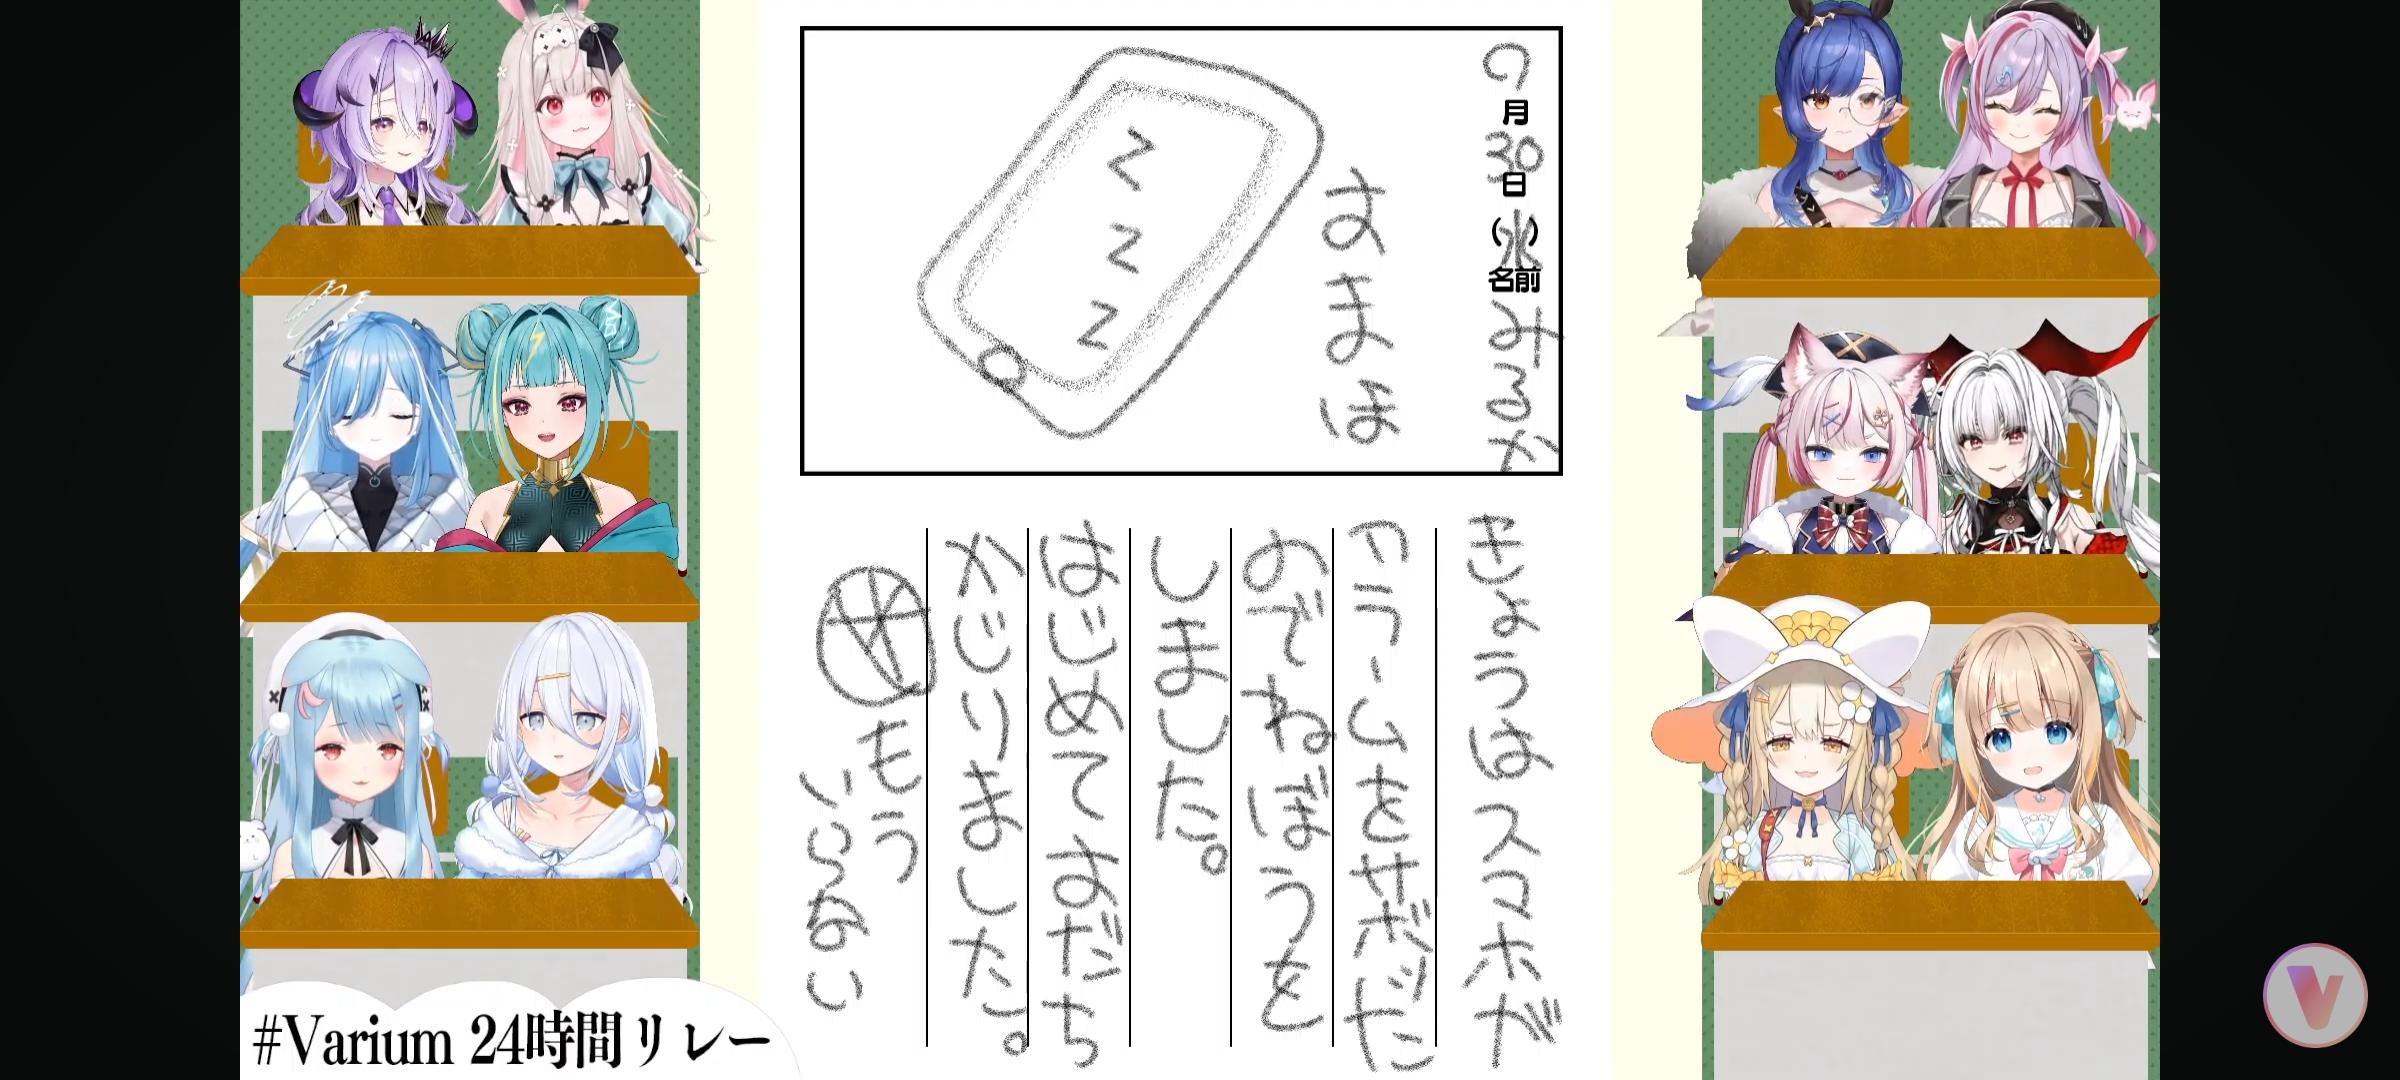 9月30日(水)名前みるか
すまほ
Z
Z
Z
きょうはスマホが
アラームをサボった
のでねぼうを
しました。
はじめてすだち
かじりました。
もう
いらない
#Varium 24時間リレー
V